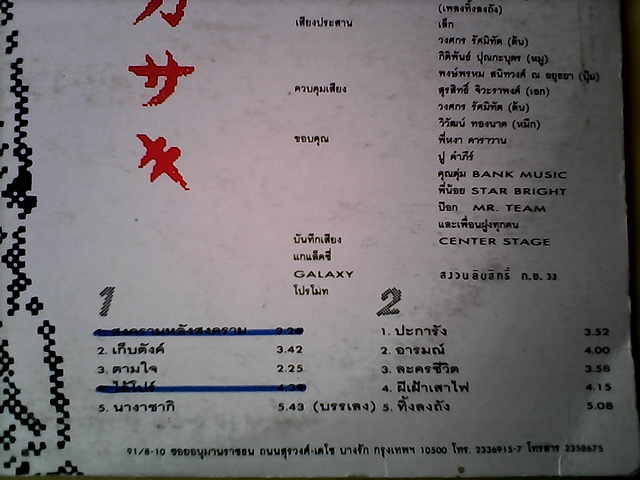 カ
サ
キ
(เพลงทิ้งลงถัง)
เสียงประสาน เล็ก
วงศกร รัศมิทัต (ต้น)
กิติพันธ์ ปุณกะบุตร (หมู)
พงษ์พรหม สนิทวงศ์ ณ อยุธยา (ปุ้ม)
ควบคุมเสียง สุรสิทธิ์ จิวะราพงศ์ (เอก)
วงศกร รัศมิทัต (ต้น)
วิวัฒน์ ทองนาค (หมึก)
ขอบคุณ พี่หงา คาราวาน
ปู คำภีร์
คุณตุ่ม BANK MUSIC
พี่น้อย STAR BRIGHT
ป๊อก MR. TEAM
และเพื่อนฝูงทุกคน
บันทึกเสียง CENTER STAGE
แกแล็คซี่
GALAXY สงวนลิขสิทธิ์ ก.ย. 33
โปรโมท
1
1. สงครามหลังสงคราม
2. เก็บตังค์ 3.42
3. ตามใจ 2.25
5. นางาซากิ 5.43 (บรรเลง)
2
1. ปะการัง 3.52
2. อารมณ์ 4.00
3. ละครชีวิต 3.58
4. ผีเฝ้าเสาไฟ 4.15
5. ทิ้งลงถัง 5.08
91/8-10 ซอยอนุมานราชธน ถนนสุรวงศ์-เดโช บางรัก กรุงเทพฯ 10500 โทร. 2336915-7 โทรสาร 2358675